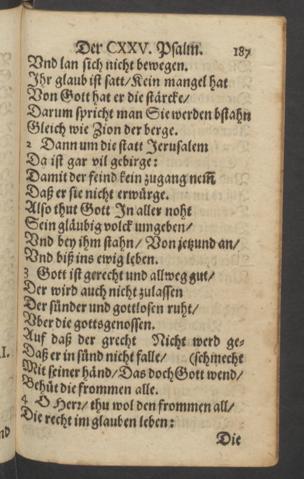 Der CXXV. Psalm. 187
Vnd lan sich nicht bewegen.
Ihr glaub ist satt/ Kein mangel hat
Von Gott hat er die stärcke/
Darum spricht man Sie werden bstahn
Gleich wie Zion der berge.
2 Dann um die statt Jerusalem
Da ist gar vil gebirge:
Damit der feind kein zugang nem̃
Daß er sie nicht erwürge.
Also thut Gott In aller noht
Sein gläubig volck umgeben/
Vnd bey ihm stahn/ Von jetzund an/
Vnd biß ins ewig leben.
3 Gott ist gerecht und allweg gut/
Der wird auch nicht zulassen
Der sünder und gottlosen ruht/
Vber die gottsgenossen.
Auf daß der grecht Nicht werd ge-
Daß er in sünd nicht falle/ (schwecht
Mit seiner händ/ Das doch Gott wend/
Behüt die frommen alle.
4 O Herr/ thu wol den frommen all/
Die recht im glauben leben:
Die
I.
nd